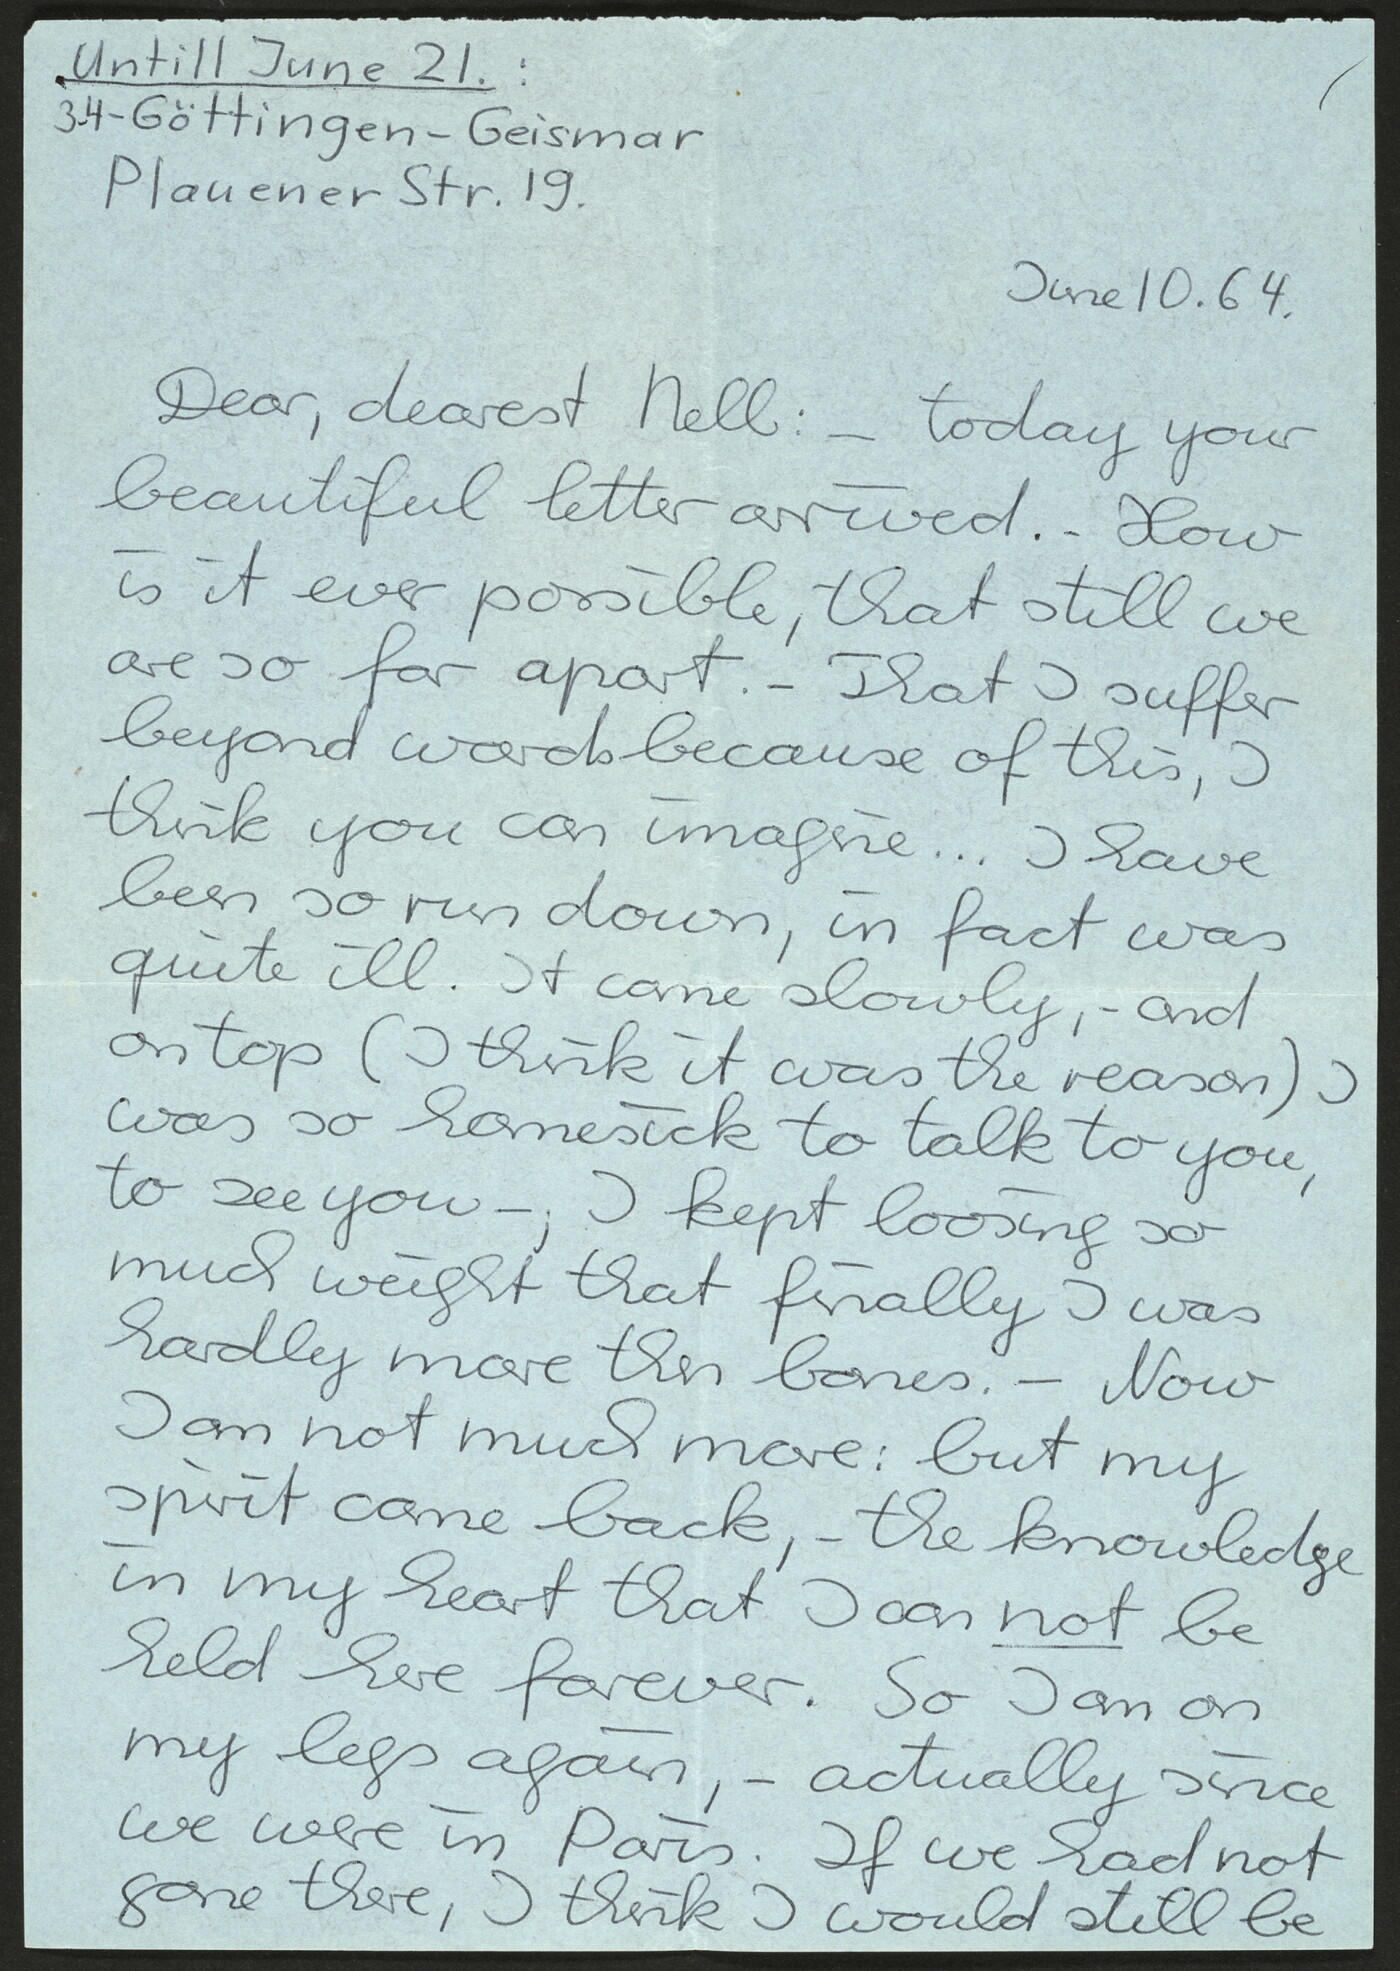 Untill June 21. :
34-Göttingen-Geismar
Plauener Str. 19.
June 10. 64.
Dear, dearest Nell: – today your
beautiful letter arrived. – How
is it ever possible, that still we
are so far apart. – That I suffer
beyond words because of this, I
think you can imagine... I have
been so run down, in fact was
quite ill. It came slowly, – and
on top (I think it was the reason) I
was so homesick to talk to you,
to see you –, I kept loosing so
much weight that finally I was
hardly more then bones. – Now
I am not much more: but my
spirit came back, – the knowledge
in my heart that I can not be
held here forever. So I am on
my legs again, – actually since
we were in Paris. If we had not
gone there, I think I would still be